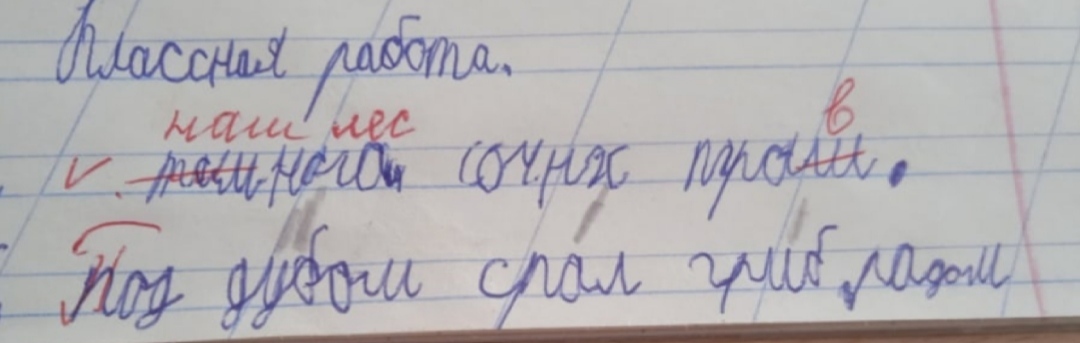 Классная работа.
наш лес в
многа сочнх траш.
Под дубом срал гриб радом